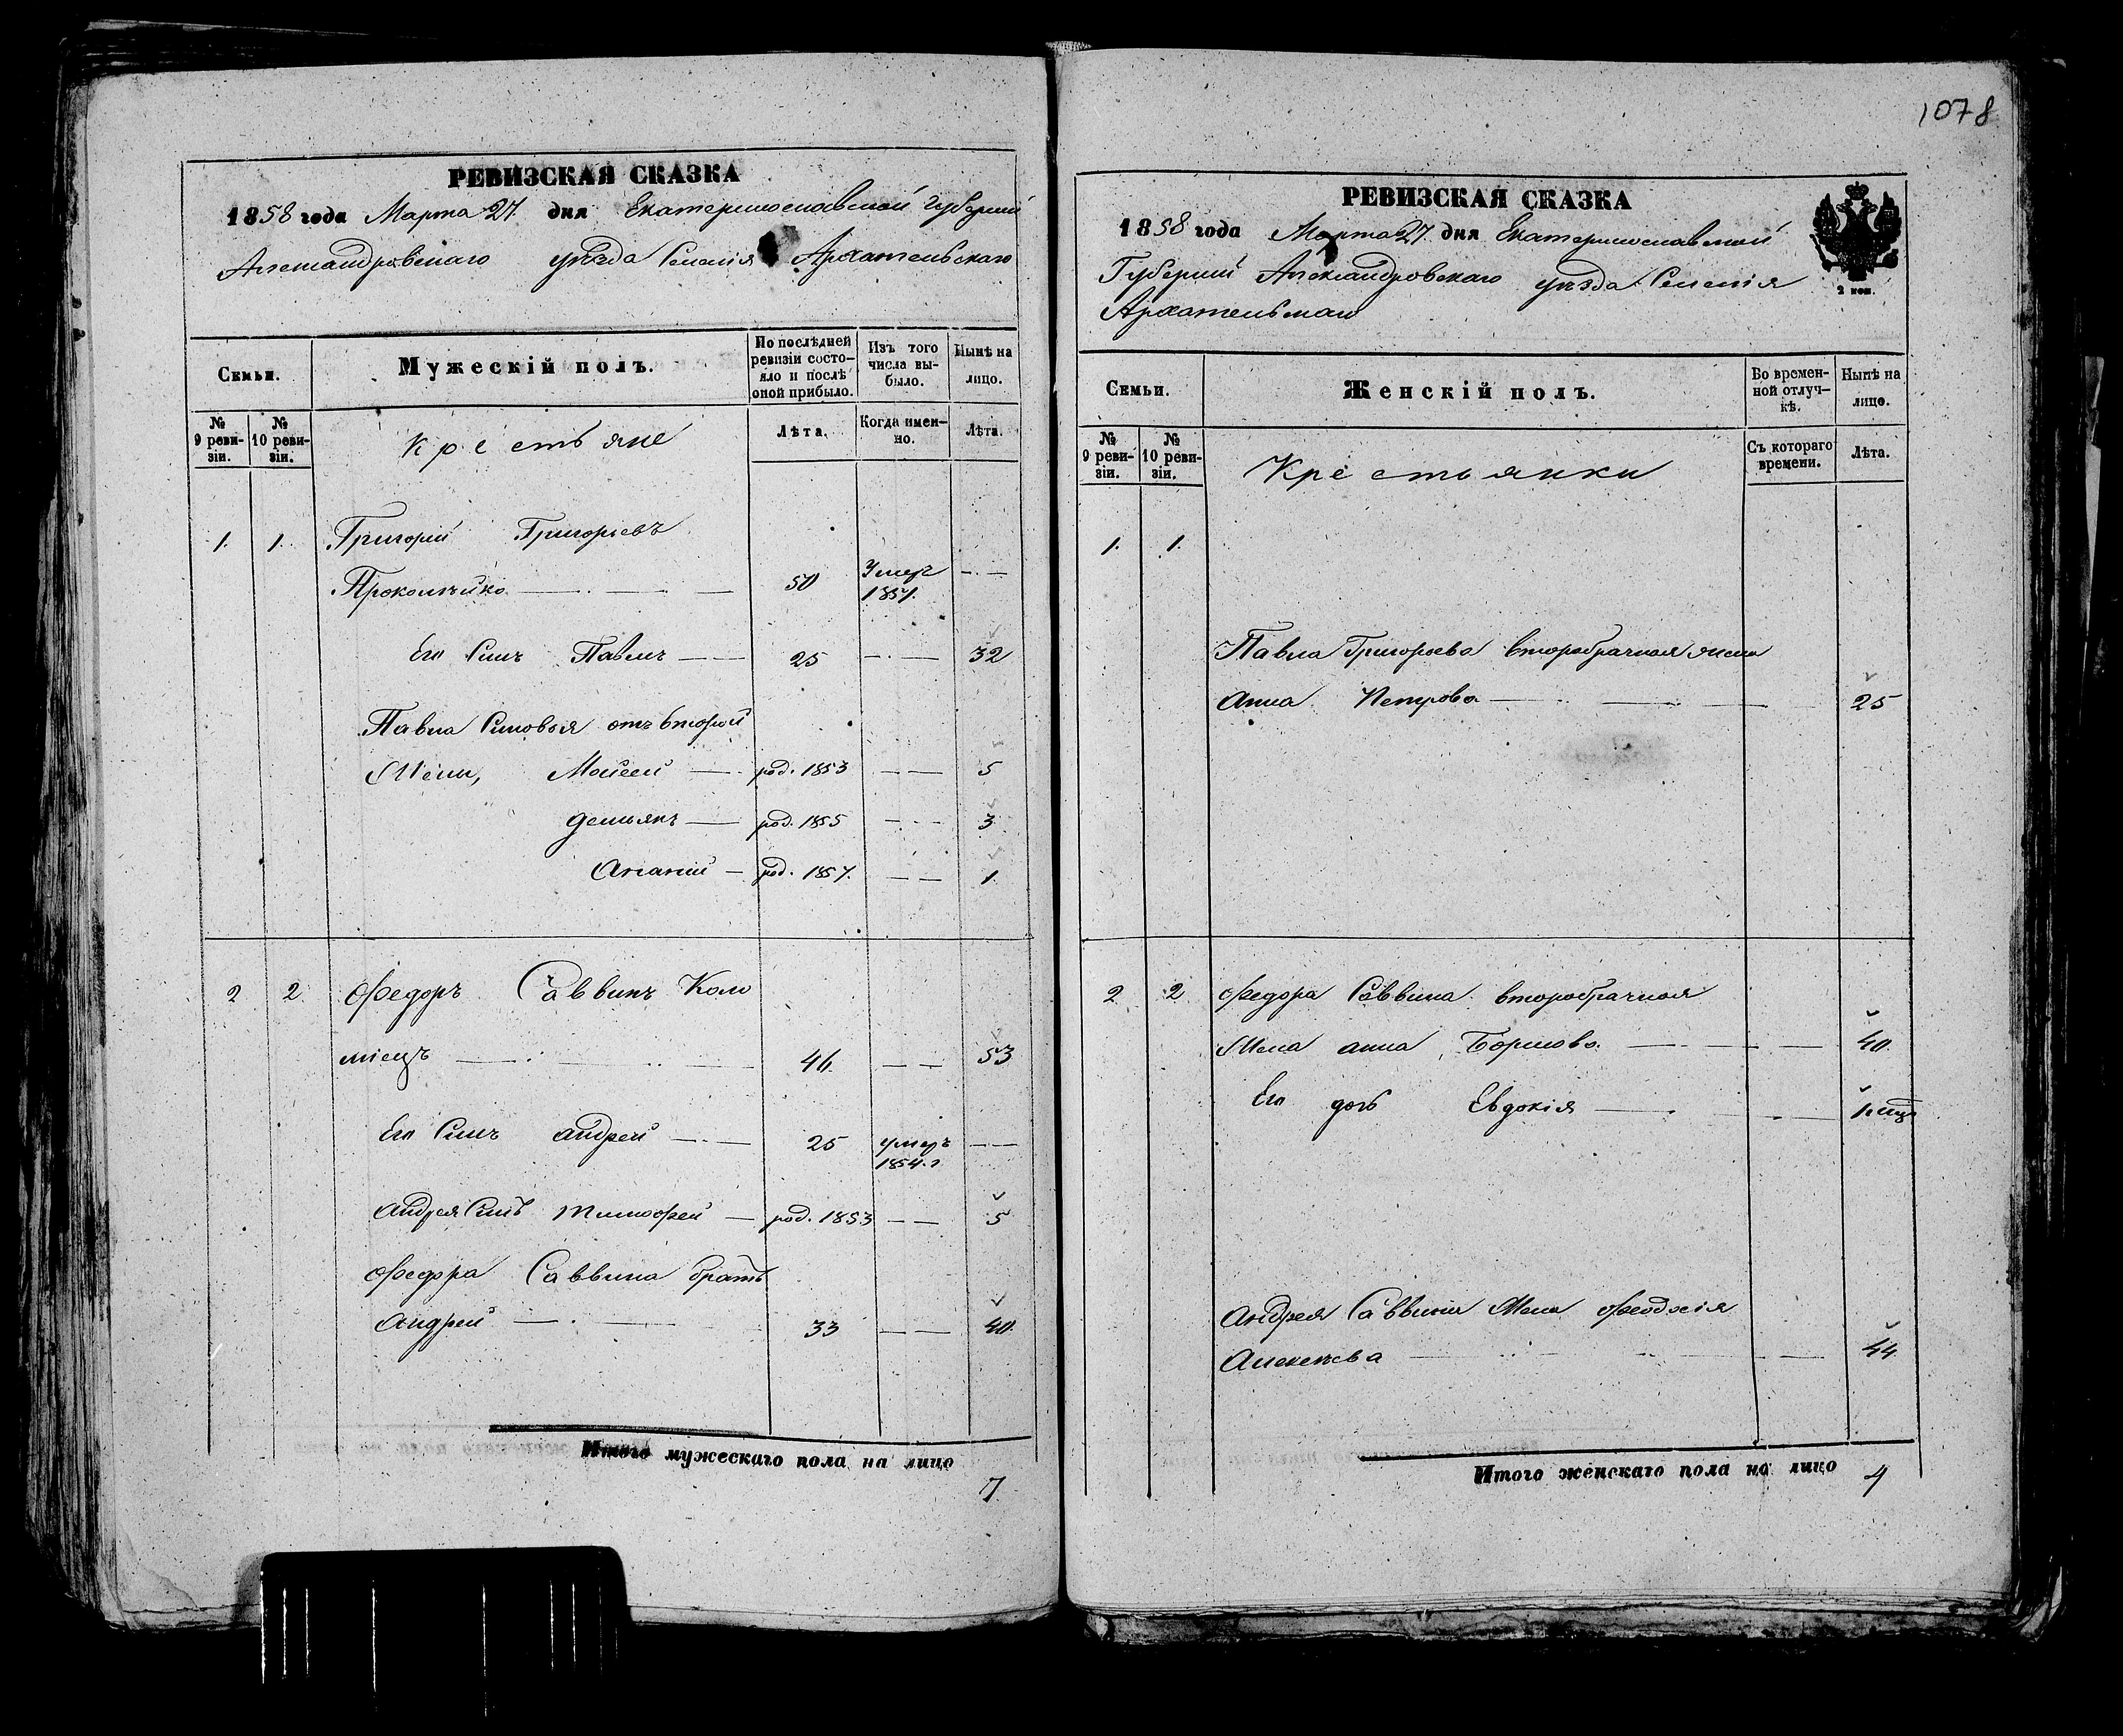 1078
РЕВИЗСКАЯ СКАЗКА
1858 года Марта 27 дня Екатеринославской Губерніи
Александровскаго уѣзда Селенія Архательскаго
Семьи.
Мужескій полъ.
По послѣдней ревизіи состо-
яло и послѣ оной прибыло.
Изъ того числа вы-
было.
Нынѣ на лицо.
№ 9 реви-
зіи.
№ 10 реви-
зіи.
Крестьяне
Лѣта.
Когда имен-
но.
Лѣта.
1. 1. Григорій Григорьевъ
50 Умеръ —
1851.
Его Сынъ Павелъ — 25 — 32
Павла Сыновья отъ второй
Жены, Мойсей — род. 1853 — 5
Демьянъ — род. 1855 — 3
Ананій — род. 1857. — 1.
2 2. Ѳедоръ Саввинъ Коло
міецъ — 46. — 53
Его Сынъ Андрей — 25 умеръ —
1854. г
Андрея Сынъ Тимофей — род. 1853 — 5
Ѳедора Саввина братъ
Андрей — 33 — 40.
Итого мужескаго пола на лицо
7.
РЕВИЗСКАЯ СКАЗКА
1858 года Марта 27 дня Екатеринославской
Губерніи Александровскаго уѣзда Селенія
2 коп.
Семьи.
Женскій полъ.
Во времен-
ной отлуч-
кѣ.
Нынѣ на лицо.
№ 9 реви-
зіи.
№ 10 реви-
зіи.
Крестьянки
Съ котораго времени.
Лѣта.
1. 1.
Павла Григорьева второбрачная жена
Анна Петрова — 25
2 2 Ѳедора Саввина второбрачная
Жена Анна — 40.
Его дочь Евдокія —
Андрея Саввина Жена Ѳеодосія
Алексѣева — 44.
Итого женскаго пола на лицо 4